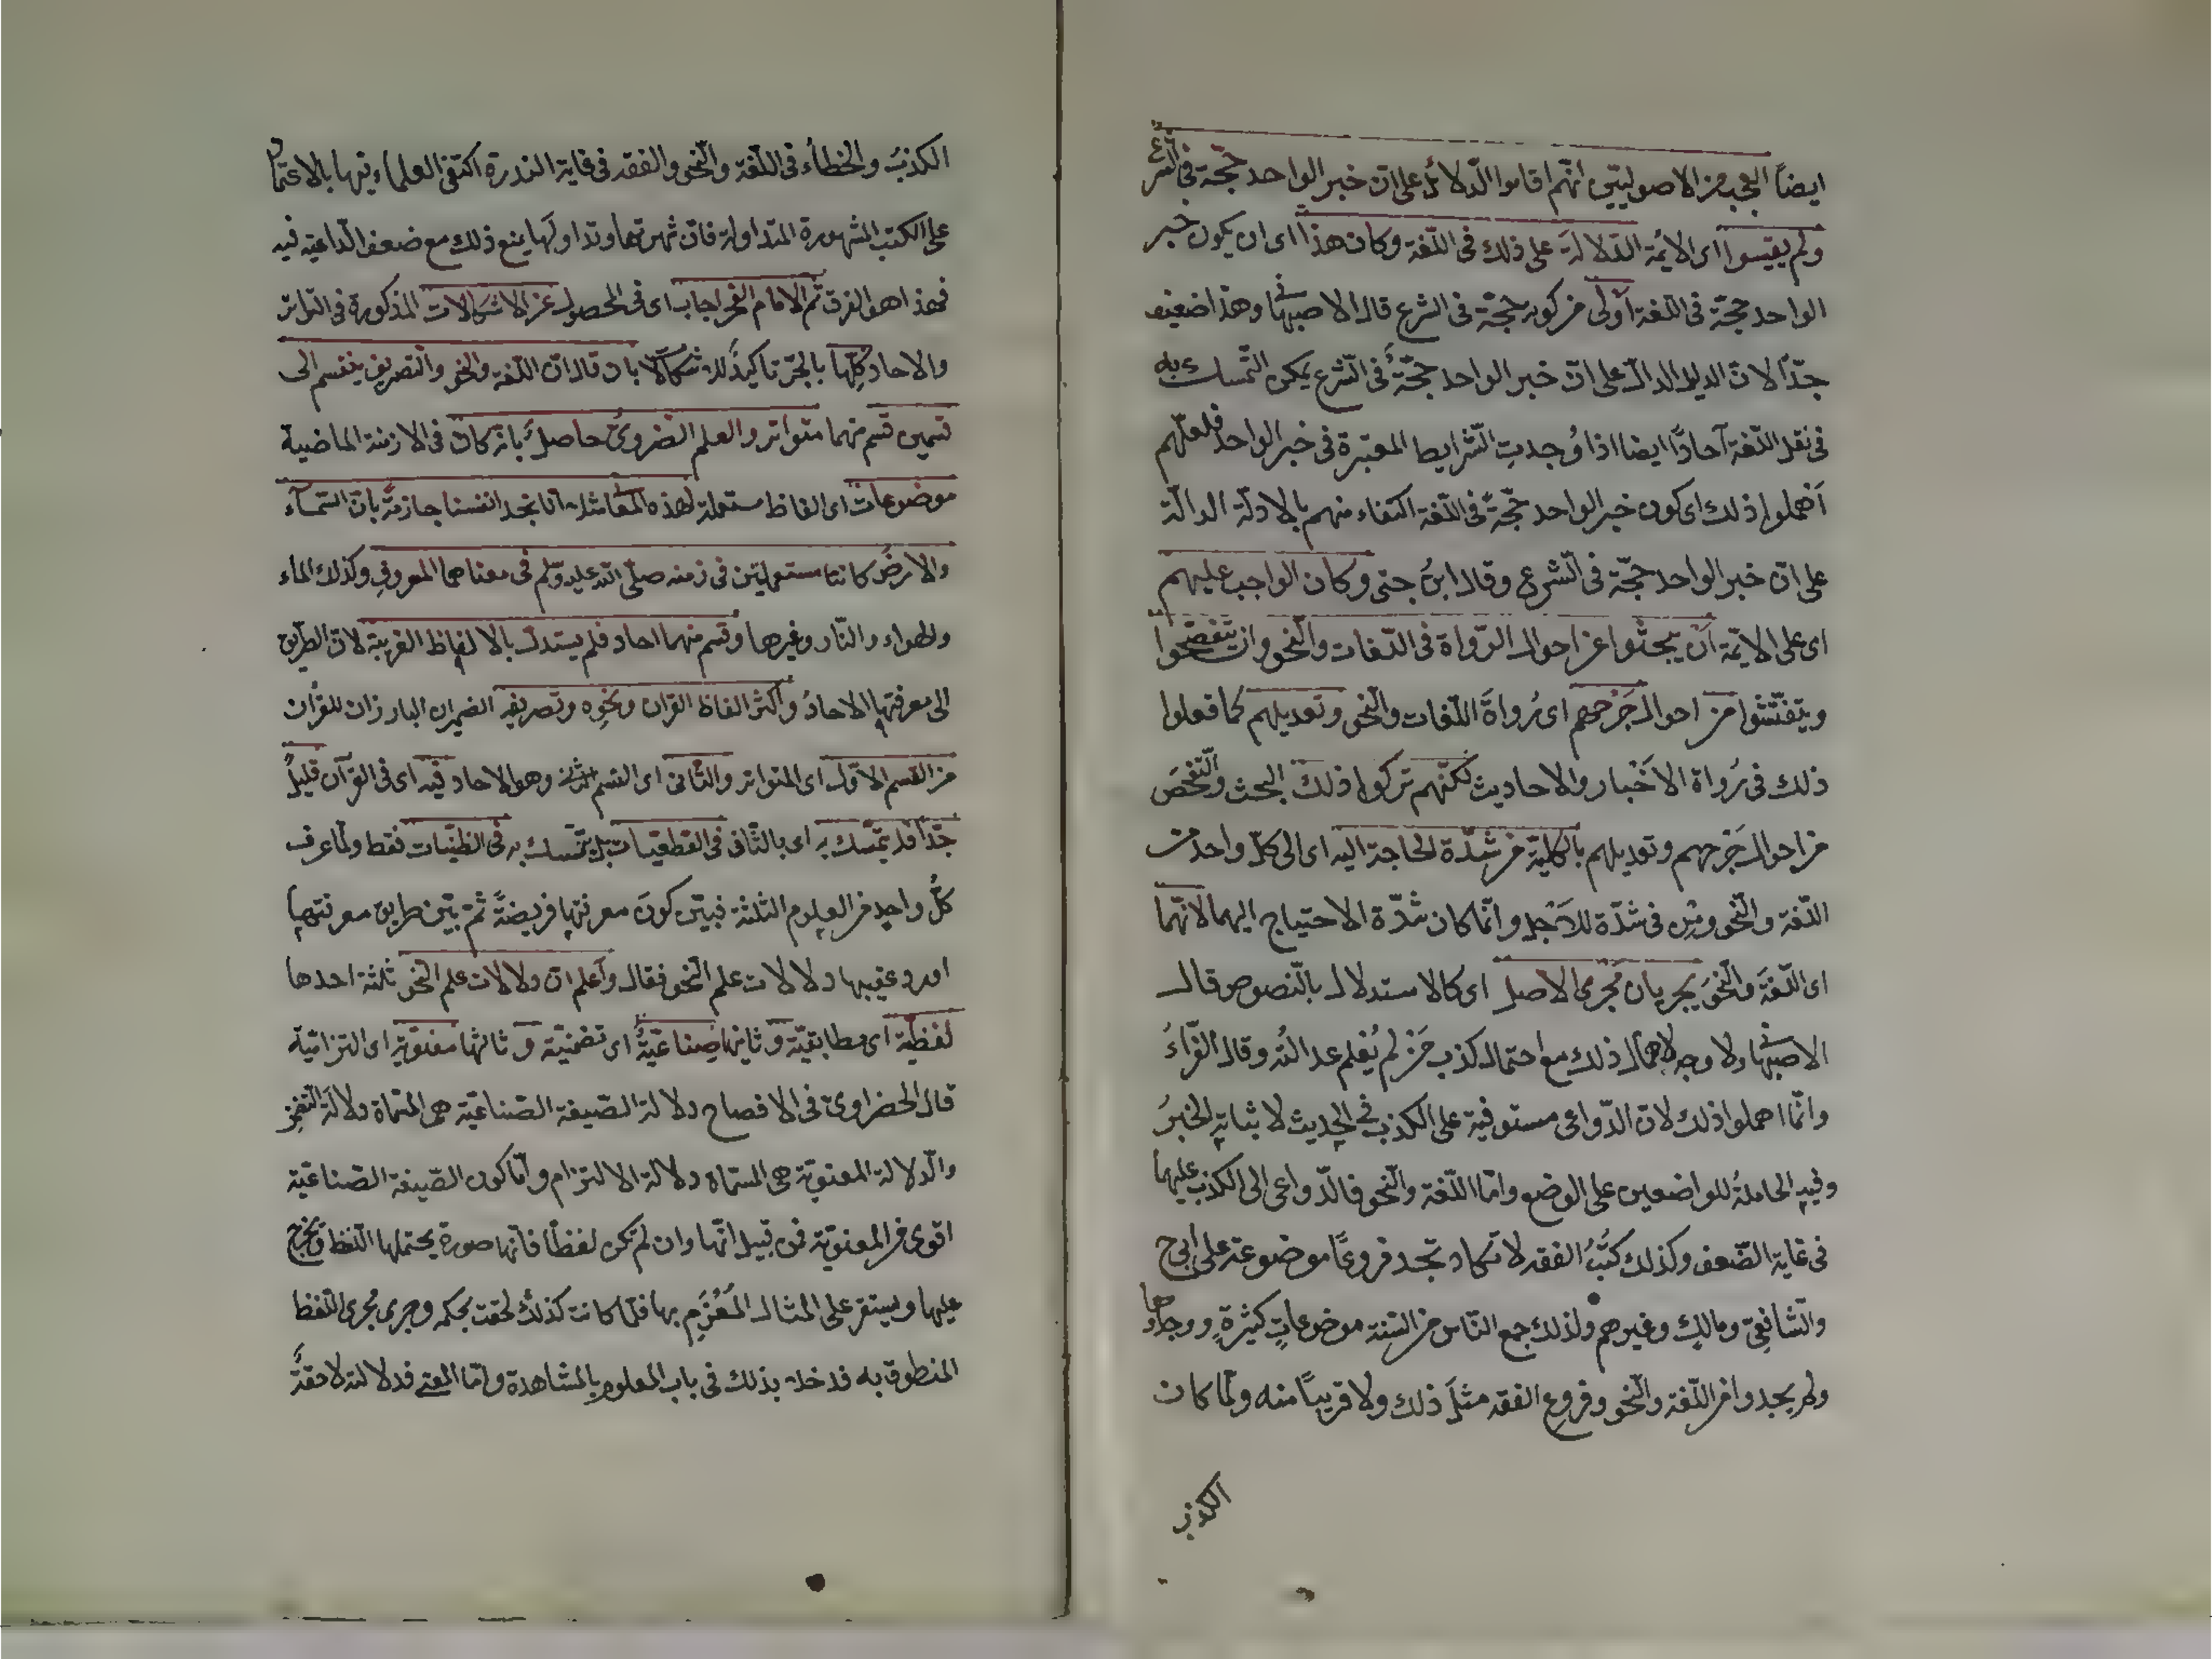 ايضاً العجب من الاصوليّين انّهم اقاموا الدّلائل على انّ خبر الواحد حجّة في الشرع
ولم يقيسوا اى الائمة الدّلالة على ذلك فى اللّغة وكان هذا اى ان يكون خبر
الواحد حجّة فى اللغة اَولى من كونه حجّة فى الشرع قال الاصبهانى وهذا ضعيف
جدّاً لانّ الدليل الدالّ على انّ خبر الواحد حجّةٌ فى الشرع يمكن التّمسك به
فى نقل اللّغة آحادًا ايضا اذا وُجدتِ الشّرايط المعتبرة فى خبر الواحد فلعلّهم
اَهملوا ذلك اى كون خبر الواحد حجّةً فى اللّغة اكتفاء منهم بالادلّة الدالّة
على انّ خبر الواحد حجّة فى الشرع وقال ابنُ جنى وكان الواجب عليهم
اى على الايمّة اَن يبحثوا عن احوال الرّواة فى اللّغات والنّحو وان يتفحّصوا
ويتفتّشوا من احوال جَرْحهم اى رُواةَ اللّغات والنّحو وتعديلهم كما فعلوا
ذلك فى رُواة الاَخْبار والاحاديث لكنّهم تركوا ذلك البحث والتّفحّصَ
من احوال جَرحهم وتعديلهم بالكلّيّة من شدّة الحاجة اليه اى الى كلّ واحد من
اللّغة والنّحو ومِن فى شدّة للاَجْل وانّما كان شدّة الاحتياج اليهما لانّهما
اى اللّغةَ والنّحوَ يجريان مَجرى الاصل اى كالاستدلال بالنّصوص قال
الاصبهانى ولا وجه لاهمال ذلك مع احتمال كذب مَن لم يُعلم عدالتُه وقال القرّاءُ
وانّما اهملوا ذلك لانّ الدّواعى مستوفية على الكذب فى الحديث لاثباته الخبرَ
وفيه الحاملةُ للواضعين على الوضع وامّا اللّغة والنّحو فالدّواعى الى الكذب عليها
فى غاية الضّعف وكذلك كُتُبُ الفقه لا تكاد تجد فروعًا موضوعة على ابى ح
والشّافعىّ ومالكٍ وغيرهم ولذلك جمع النّاس من السّنة موضوعاتٍ كثيرةٍ ووجدوها
ولم يجدوا من اللّغة والنّحو وفروع الفقه مثلَ ذلك ولا قريبًا منه ولمّا كان
الكذب
الكذبُ والخطأء فى اللّغة والنّحو والفقه فى غاية الندرة اكتفى العلماء فيها بالاعتماد
على الكتب المشهورة المتداولة فانّ شهرتها وتداولها يمنع ذلك مع ضعف الدّاعية فيه
فهذا هو الفرق ثمّ الامام الفخر اجاب اى فى المحصول عن الاشكالات المذكورة فى التواتر
والاحاد كلِّها بالجرّ تاكيدٌ للاشكالات بان قال انّ اللّغة والنّحو والتّصريف ينقسم الى
قسمين قسم منهما متواتر والعلم الضّرورىّ حاصلٌ بانه كان فى الازمنة الماضية
موضوعات اى الفاظ مستعملة لهذه المعانى مثلا انا نجد انفسنا جازمةً بان السّمآء
والارضَ كانتا مستعملتين فى زمنه صلّى الله عليه وسلّم فى معناهما المعروفِ وكذلك الماء
والهواء والنّار وغيرها وقسم منهما احاد فلم يستدلّ بالالفاظ الغريبة لانّ الطّريق
الى معرفتها الاحادُ واكثر الفاظ القران ونحوِه وتصريفِه الضميران البارزان للقرآن
من القسم الاوّل اى المتواتر والثّانى اى القسم الثانى وهو الاحاد فيه اى فى القرآن قليلٌ
جدّا فلا يتمسّك به اى بالثّانى فى القطعيات بل يتمسك به فى الظنّيات فقط ولمّا عرف
كلُّ واحدٍ من العلوم الثلثة فبيّن كونَ معرفتها فريضةً ثمّ بيّن طريق معرفتها
اورد عقيبها دلالات علم النّحو فقال واعلم ان دلالات علم النّحو ثلثة احدها
لفظيّة اى مطابقيّة وثانيها صناعيّةٌ اى تضمّنيّة وثالثها معنويّة اى التزاميّة
قال الخضراوىّ فى الافصاح دلالة الصّيغة الصّناعيّة هى المسمّاة دلالة التّضمّن
والدّلالة المعنويّة هى المسمّاة دلالة الالتزام وامّا كون الصّيغة الصّناعيّة
اقوى من المعنويّة فمن قبيل انّها وان لم تكن لفظًا فانّها صورة يحتملها اللّفظ ويخرج
عليها ويستقر على المثال المُعْتَزَمِ بها فلمّا كانت كذلك لحقت بحكمه وجرى مجرى اللّفظ
المنطوق به فدخلا بذلك فى باب المعلوم بالمشاهدة وامّا المعنى فدلالته لاحقةٌ